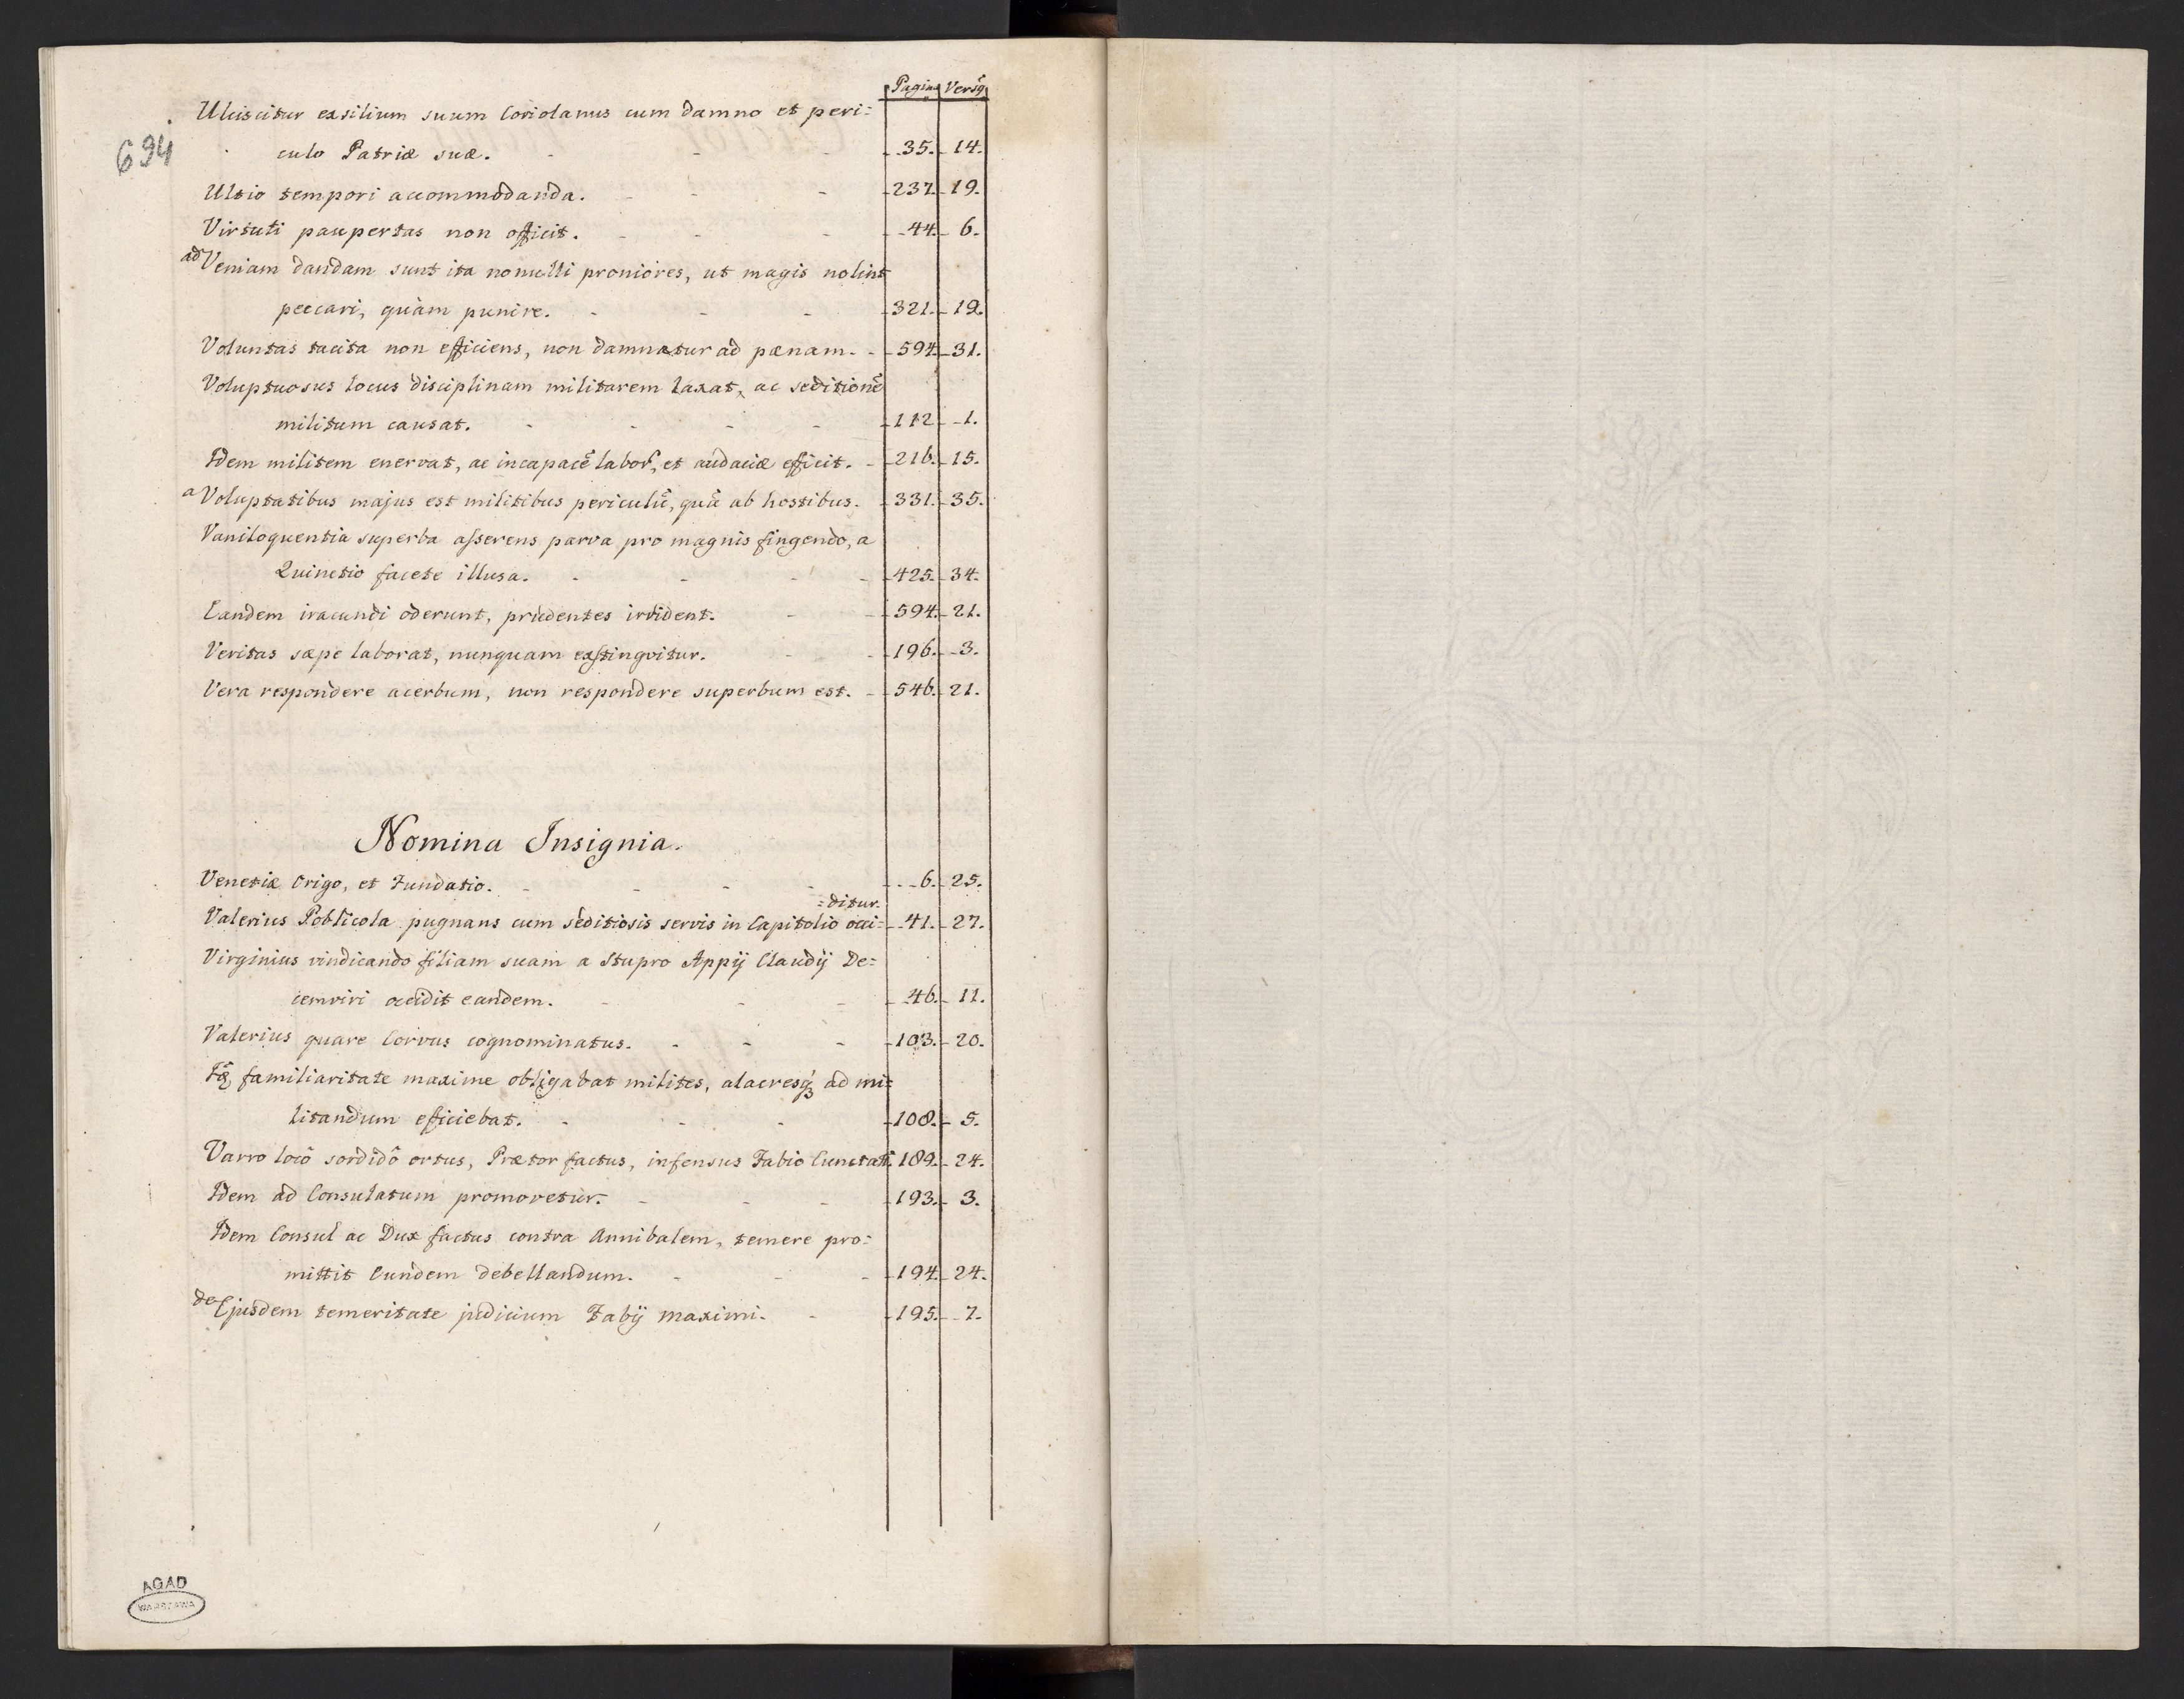 Pagina Versꝯ
Ulciscitur exsilium suum Coriolanus cum damno et peri=
694
culo Patriæ suæ. - - - 35. 14.
Ultio tempori accommodanda. - - - 237. 19.
Virtuti paupertas non officit. - - - 44. 6.
ad Veniam dandam sunt ita nonulli proniores, ut magis nolint
peccari, quàm punire. - - - 321. 19.
Voluntas tacita non efficiens, non damnatur ad pænam. - 594. 31.
Voluptuosus locus disciplinam militarem laxat, ac seditionē
militum causat. - - - - 112. 1.
Idem militem enervat, ac incapacē labor, et audaciæ efficit. - 216. 15.
a Voluptatibus majus est militibus periculū, quā ab hostibus. 331. 35.
Vaniloquentia superba asserens parva pro magnis fingendo, a
Quinctio facete illusa. - - - - 425. 34.
Eandem iracundi oderunt, prudentes irrident. - - 594. 21.
Veritas sæpe laborat, nunquam exstingvitur. - - 196. 3.
Vera respondere acerbum, non respondere superbum est. - 546. 21.
Nomina Insignia.
Venetiæ Origo, et Fundatio. - - - - 6. 25.
=ditur.
Valerius Poblicola pugnans cum seditiosis servis in Capitolio occi= 41. 27.
Virginius vindicando filiam suam a Stupro Appij Claudij De=
cemviri occidit eandem. - - - 46. 11.
Valerius quare Corvus cognominatus. - - - 103. 20.
familiaritate maxime obligabat milites, alacresq3 ad mi=
litandum efficiebat. - - - 108. 5.
Varro locô sordidô ortus, Prætor factus, infensus Fabio Cunctat. 189. 24.
Idem ad Consulatum promovetur. - - - 193. 3.
Idem Consul ac Dux factus contra Annibalem, temere pro=
mittit Eundem debellandum. - - - 194. 24.
de Ejusdem temeritate judicium Fabij maximi. - 195. 7.
AGAD
WARSZAWA